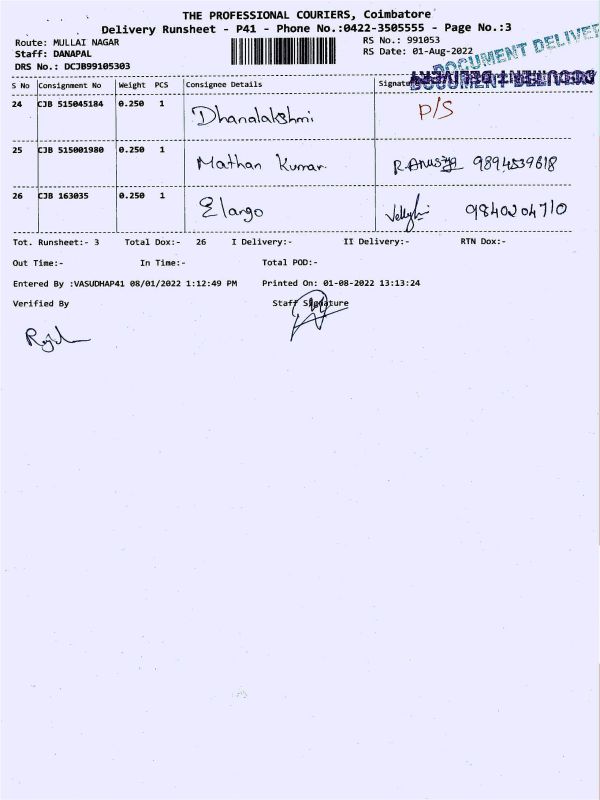 THE PROFESSIONAL COURIERS, Coimbatore
Delivery Runsheet - P41 - Phone No.:0422-3505555 - Page No.:3
Route: MULLAI NAGAR
RS No.: 991053
Staff: DANAPAL
RS Date: 01-Aug-2022
DRS No.: DCJB99105303
DOCUMENT DELIVE
S No Consignment No Weight PCS Consignee Details Signatu
24 CJB 515045184 0.250 1 Dhanalakshmi P/S
25 CJB 515001980 0.250 1 Mathan Kumar R.Anusya 9894539618
26 CJB 163035 0.250 1 Elango 9840204710
Tot. Runsheet:- 3 Total Dox:- 26 I Delivery:- II Delivery:- RTN Dox:-
Out Time:- In Time:- Total POD:-
Entered By :VASUDHAP41 08/01/2022 1:12:49 PM Printed On: 01-08-2022 13:13:24
Verified By Staff Signature